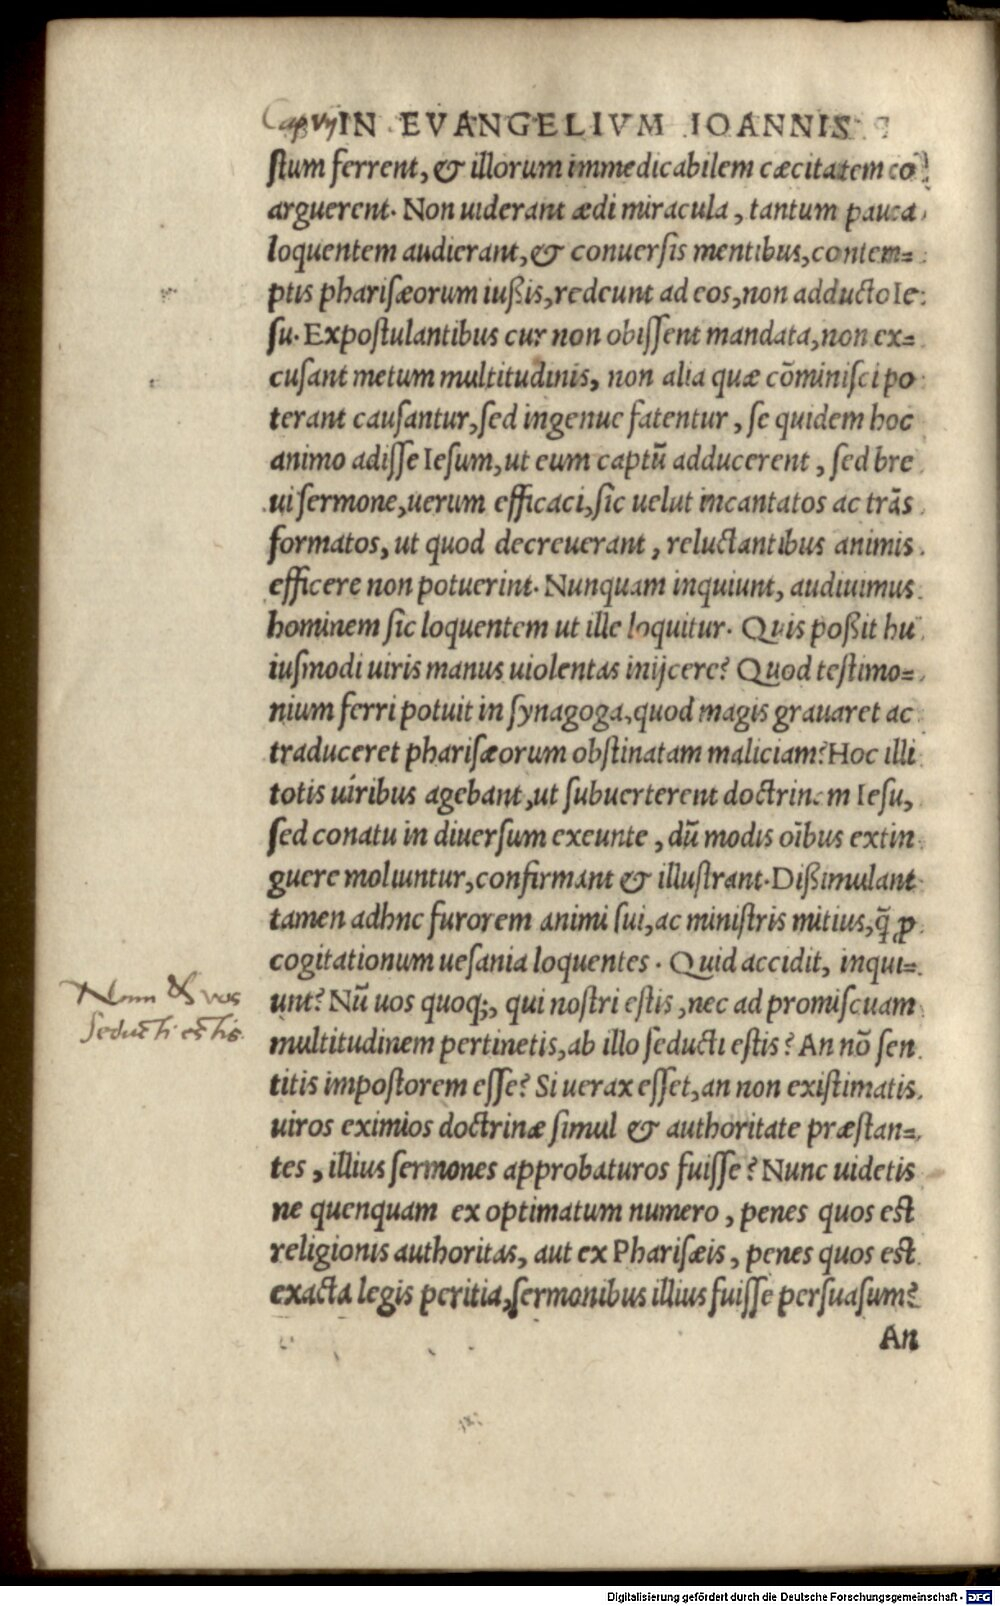 Cap vij IN EVANGELIVM IOANNIS
ſtum ferrent, & illorum immedicabilem cæcitatem cō
arguerent. Non uiderant ædi miracula, tantum pauca
loquentem audierant, & conuerſis mentibus, contem=
ptis phariſæorum iußis, redeunt ad eos, non adducto Ie
ſu. Expoſtulantibus cur non obiſſent mandata, non ex=
cuſant metum multitudinis, non alia quæ cōminiſci po
terant cauſantur, ſed ingenue fatentur, ſe quidem hoc
animo adiſſe Ieſum, ut eum captū adducerent, ſed bre
ui ſermone, uerum efficaci, ſic uelut incantatos ac trāſ
formatos, ut quod decreuerant, reluctantibus animis
efficere non potuerint. Nunquam inquiunt, audiuimus
hominem ſic loquentem ut ille loquitur. Quis poßit hu
iuſmodi uiris manus uiolentas inijcere? Quod teſtimo=
nium ferri potuit in ſynagoga, quod magis grauaret ac
traduceret phariſæorum obſtinatam maliciam? Hoc illi
totis uiribus agebant, ut ſubuerterent doctrinam Ieſu,
ſed conatu in diuerſum exeunte, dū modis oībus extin
guere moliuntur, confirmant & illuſtrant. Dißimulant
tamen adhnc furorem animi ſui, ac miniſtris mitius, q̄ ꝓ
cogitationum ueſania loquentes. Quid accidit, inqui=
unt? Nū uos quoq;, qui noſtri eſtis, nec ad promiſcuam
multitudinem pertinetis, ab illo ſeducti eſtis? An nō ſen
titis impoſtorem eſſe? Si uerax eſſet, an non exiſtimatis
uiros eximios doctrinæ ſimul & authoritate præſtan=
tes, illius ſermones approbaturos fuiſſe? Nunc uidetis
ne quenquam ex optimatum numero, penes quos eſt
religionis authoritas, aut ex Phariſæis, penes quos eſt
exacta legis peritia, ſermonibus illius fuiſſe perſuaſum?
An
Num & vos
ſeducti estis
Digitalisierung gefördert durch die Deutsche Forschungsgemeinschaft - DFG